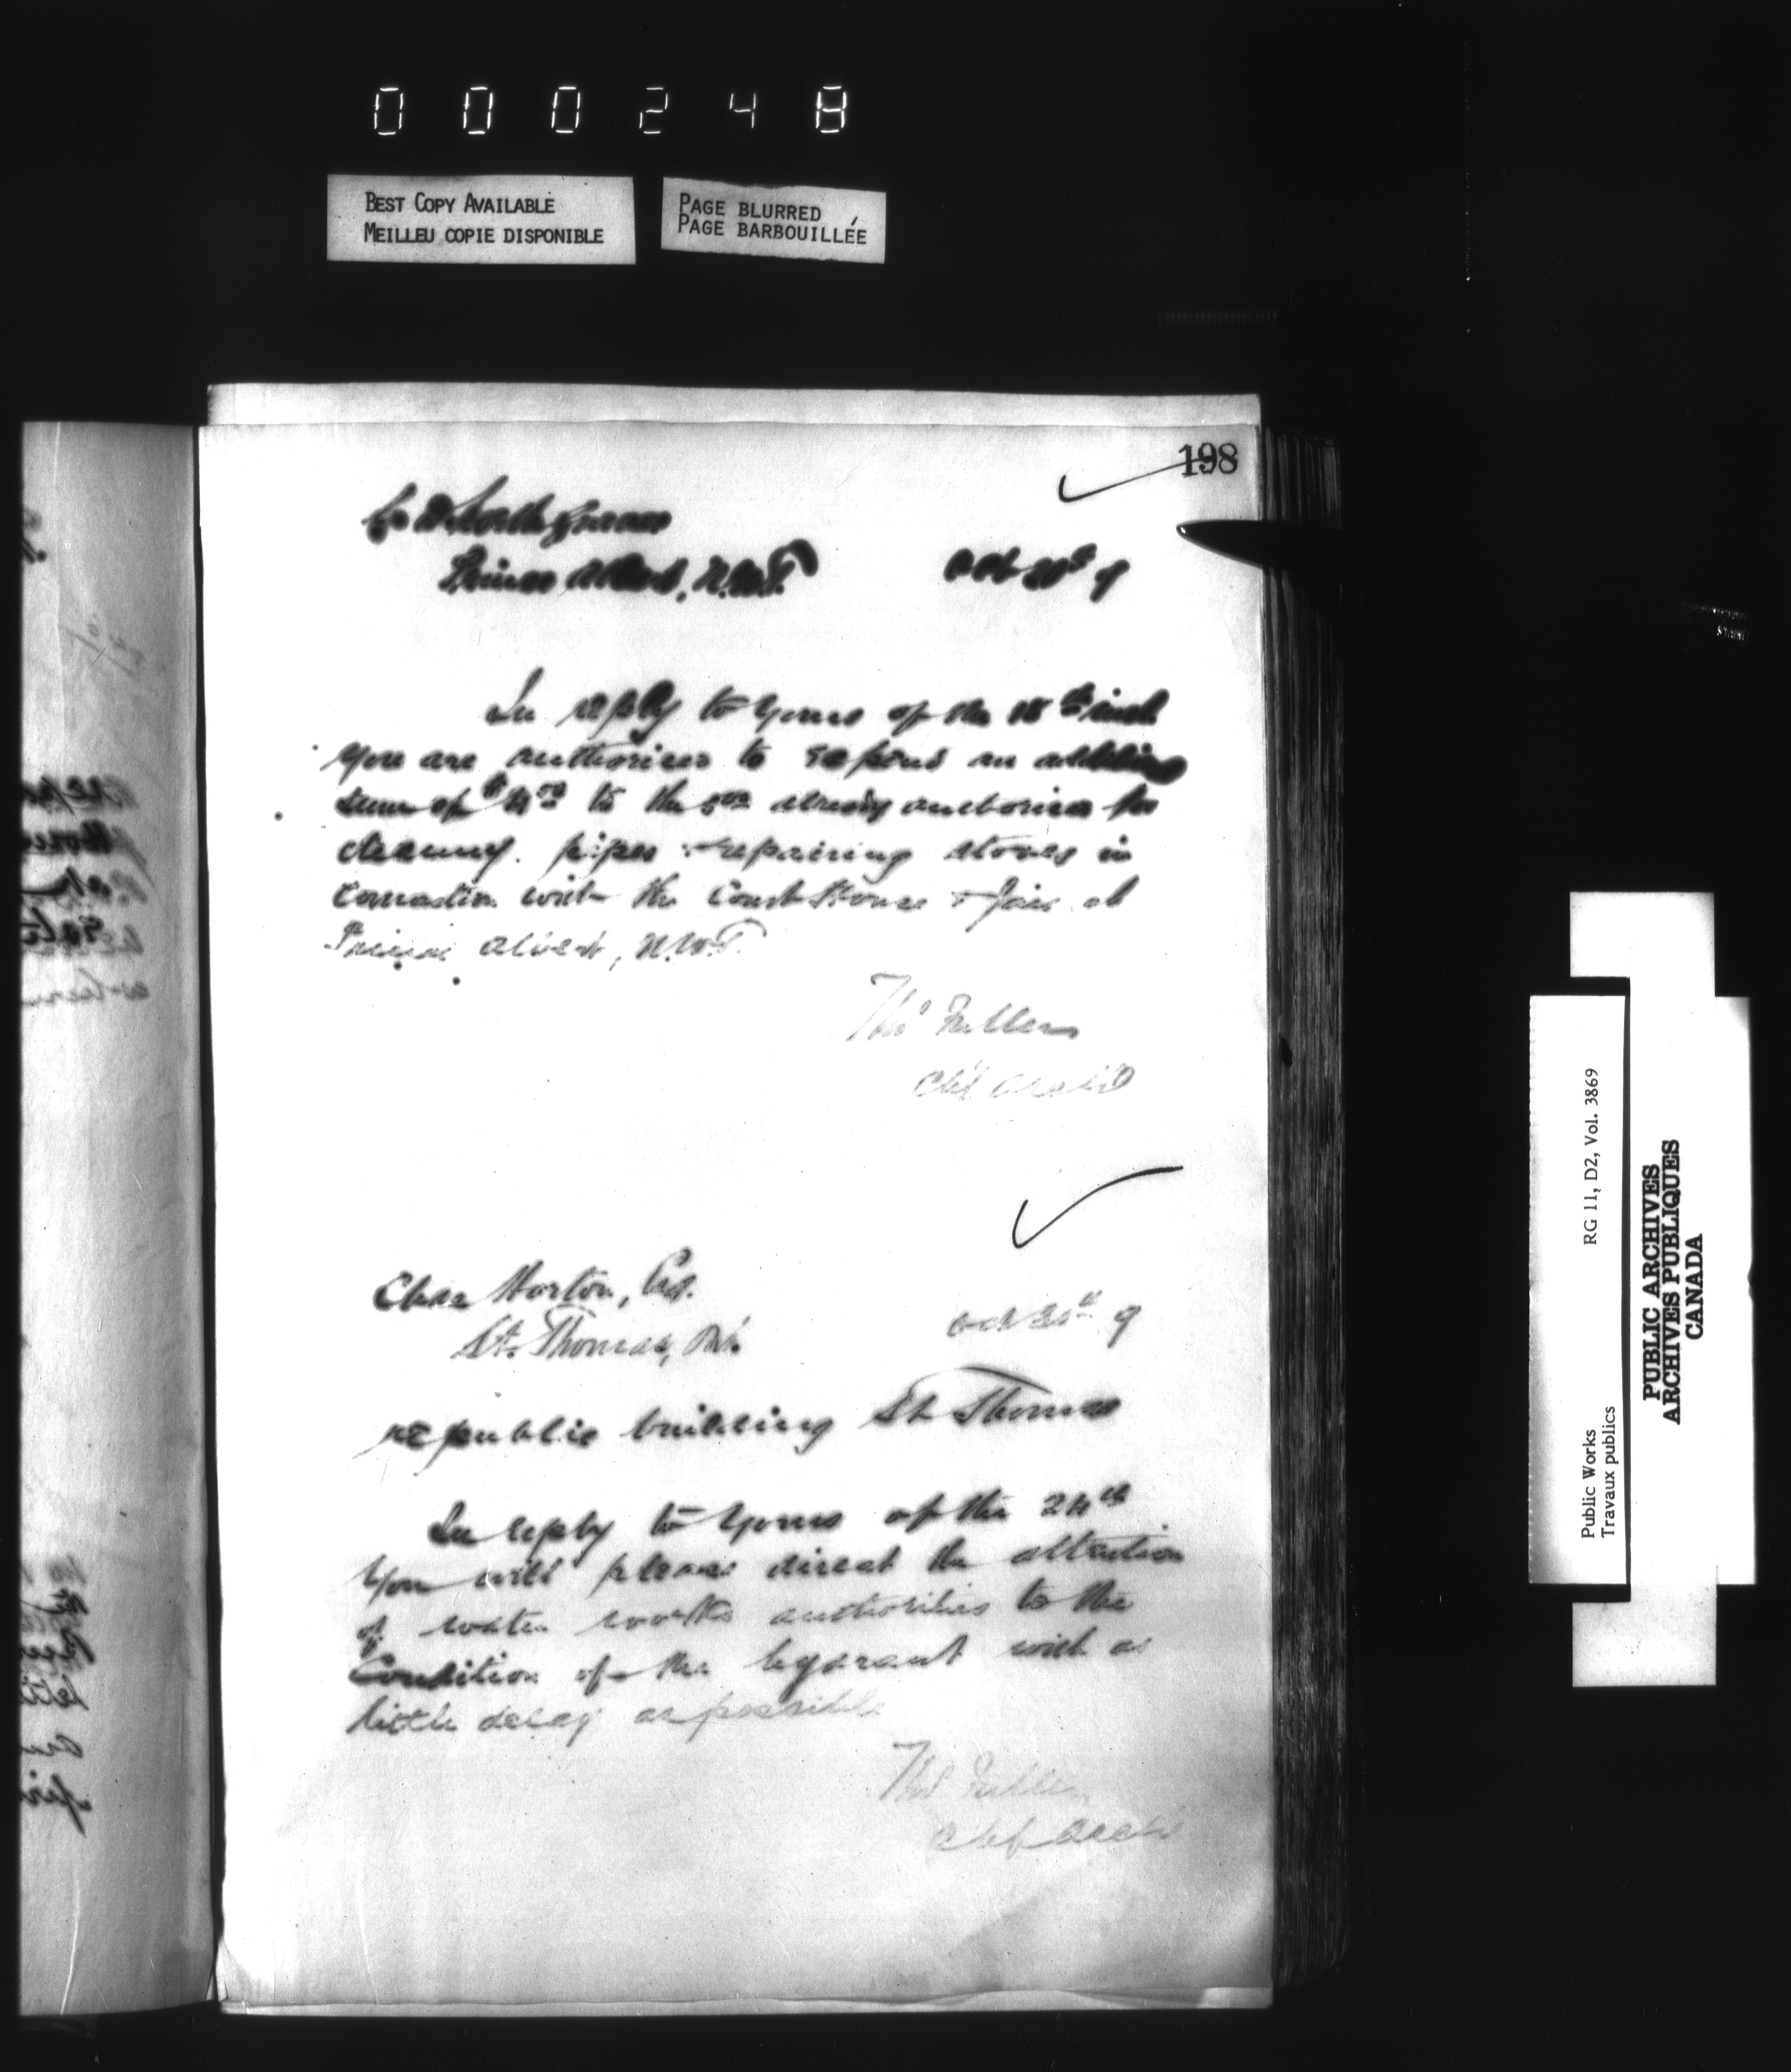 000248
BEST COPY AVAILABLE
MEILLEU COPIE DISPONIBLE
PAGE BLURRED
PAGE BARBOUILLÉE
198
Prince Albert, N.W.T.
Oct
In reply to yours of the 18th inst
You are authorised to expend an additional
sum of to the already authorised for
cleaning pipes & repairing stoves in
connection with the Court House & Jail at
Prince Albert, N.W.T.
Thos Fuller
Chf Archt
Chas Horton, Esq.
St. Thomas, Ont.
Oct 9
re public building St Thomas
In reply to yours of the 24th
You will please direct the attention
of water works authorities to the
condition of the hydrant with as
little delay as possible
Thos Fuller
Chf Archt
Public Works
Travaux publics
RG 11, D2, Vol. 3869
PUBLIC ARCHIVES
ARCHIVES PUBLIQUES
CANADA